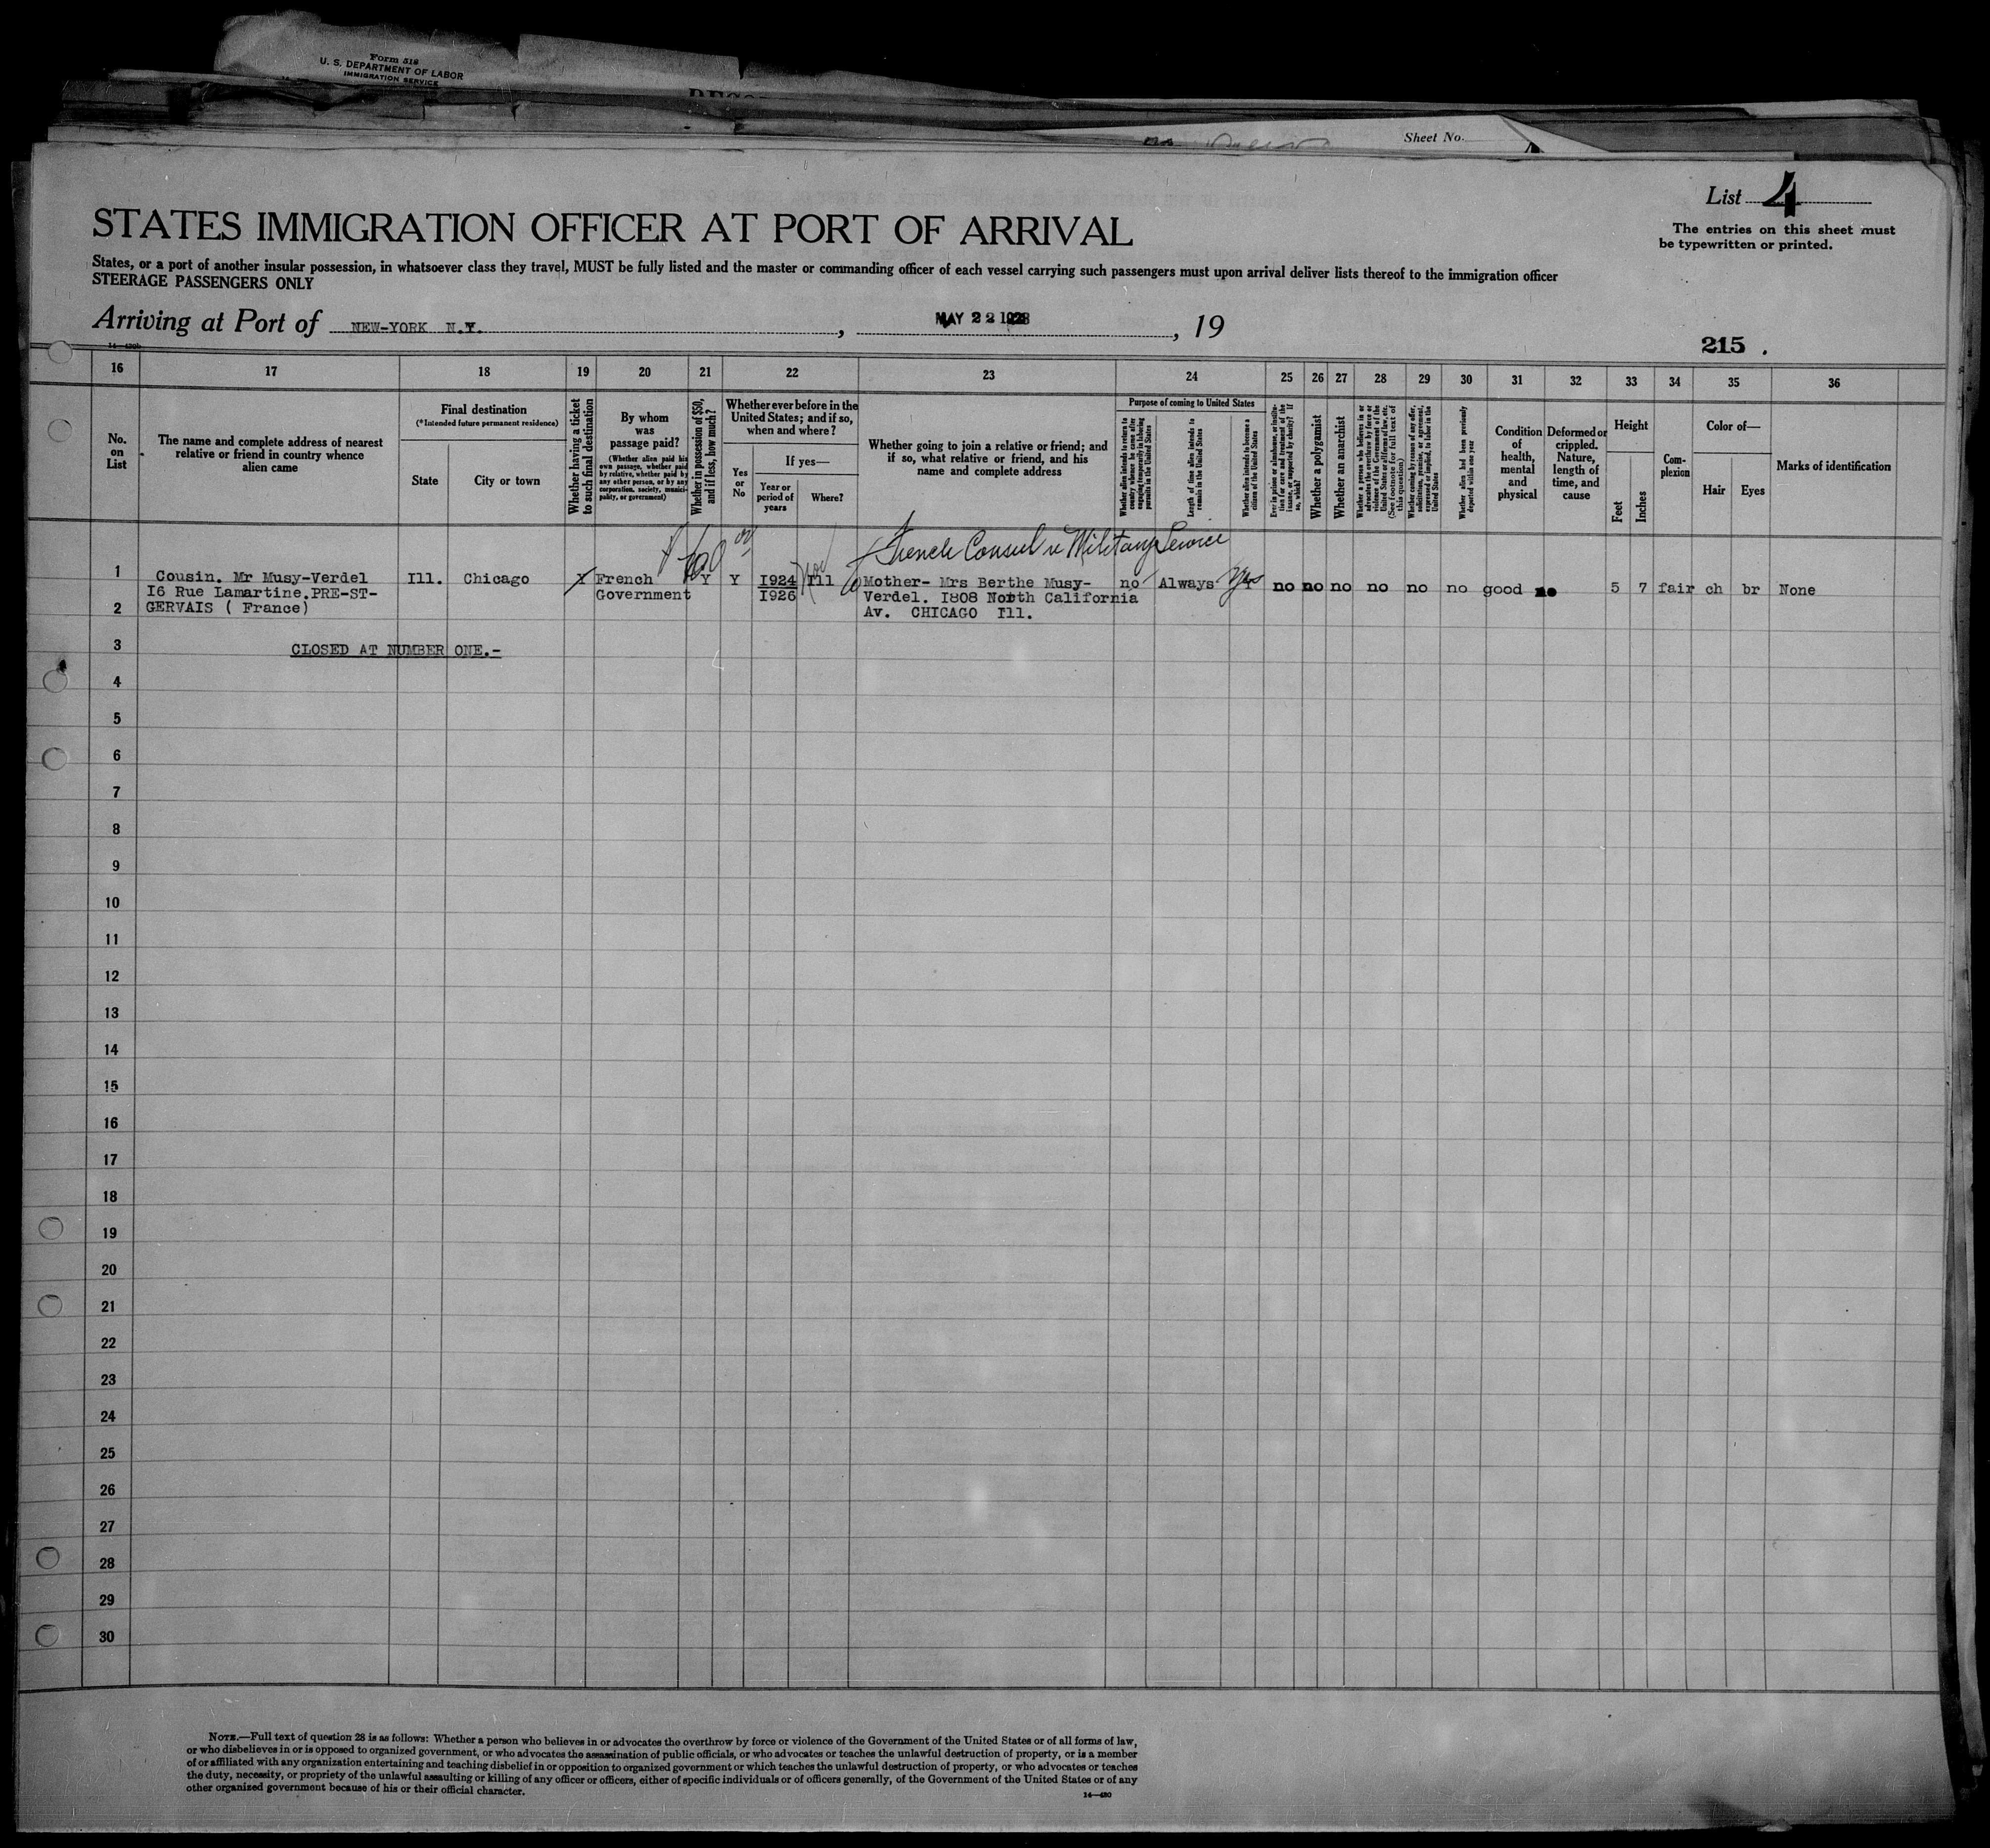 Form 518
U. S. DEPARTMENT OF LABOR
IMMIGRATION SERVICE
Sheet No.
List 4
The entries on this sheet must
be typewritten or printed.
STATES IMMIGRATION OFFICER AT PORT OF ARRIVAL
States, or a port of another insular possession, in whatsoever class they travel, MUST be fully listed and the master or commanding officer of each vessel carrying such passengers must upon arrival deliver lists thereof to the immigration officer
STEERAGE PASSENGERS ONLY
Arriving at Port of NEW-YORK N.Y. , MAY 22 1928 , 19
215 .
16 17 18 19 20 21 22 23 24 25 26 27 28 29 30 31 32 33 34 35 36
No.
on
List
The name and complete address of nearest
relative or friend in country whence
alien came
Final destination
(*Intended future permanent residence)
State
City or town
Whether having a ticket
to such final destination
By whom
was
passage paid?
(Whether alien paid his
own passage, whether paid
by relative, whether paid by
any other person, or by any
corporation, society, munici-
pality, or government)
Whether in possession of $50,
and if less, how much?
Whether ever before in the
United States; and if so,
when and where?
Yes
or
No
If yes—
Year or
period of
years
Where?
Whether going to join a relative or friend; and
if so, what relative or friend, and his
name and complete address
Purpose of coming to United States
Whether alien intends to return to
country whence he came after
engaging temporarily in laboring
pursuits in the United States
Length of time alien intends to
remain in the United States
Whether alien intends to become a
citizen of the United States
Ever in prison or almshouse, or institu-
tion for care and treatment of the
insane, or supported by charity? If
so, which?
Whether a polygamist
Whether an anarchist
Whether a person who believes in or
advocates the overthrow by force or
violence of the Government of the
United States or all forms of law, etc.
(See footnote for full text of
this question)
Whether coming by reason of any offer,
solicitation, promise, or agreement,
expressed or implied, to labor in the
United States
Whether alien had been previously
deported within one year
Condition
of
health,
mental
and
physical
Deformed or
crippled.
Nature,
length of
time, and
cause
Height
Feet
Inches
Com-
plexion
Color of—
Hair
Eyes
Marks of identification
French Consul re Military Service
1 Cousin. Mr Musy-Verdel Ill. Chicago Y French Y Y 1924 Ill Mother- Mrs Berthe Musy- no Always Yes no no no no no no good no 5 7 fair ch br None
I6 Rue Lamartine.PRE-ST- Government 1926 Verdel. I808 North California
2 GERVAIS ( France) Av. CHICAGO Ill.
3 CLOSED AT NUMBER ONE.-
4
5
6
7
8
9
10
11
12
13
14
15
16
17
18
19
20
21
22
23
24
25
26
27
28
29
30
NOTE.—Full text of question 28 is as follows: Whether a person who believes in or advocates the overthrow by force or violence of the Government of the United States or of all forms of law,
or who disbelieves in or is opposed to organized government, or who advocates the assassination of public officials, or who advocates or teaches the unlawful destruction of property, or is a member
of or affiliated with any organization entertaining and teaching disbelief in or opposition to organized government or which teaches the unlawful destruction of property, or who advocates or teaches
the duty, necessity, or propriety of the unlawful assaulting or killing of any officer or officers, either of specific individuals or of officers generally, of the Government of the United States or of any
other organized government because of his or their official character.
14—420